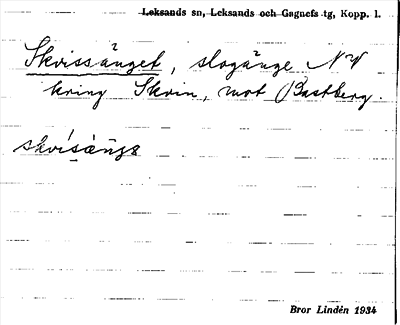 Leksands sn, Leksands och Gagnefs tg, Kopp. l.
Skvissänget, slogänge NV
kring Skvin, mot Bastberg.
skvísàŋs
Bror Lindén 1934